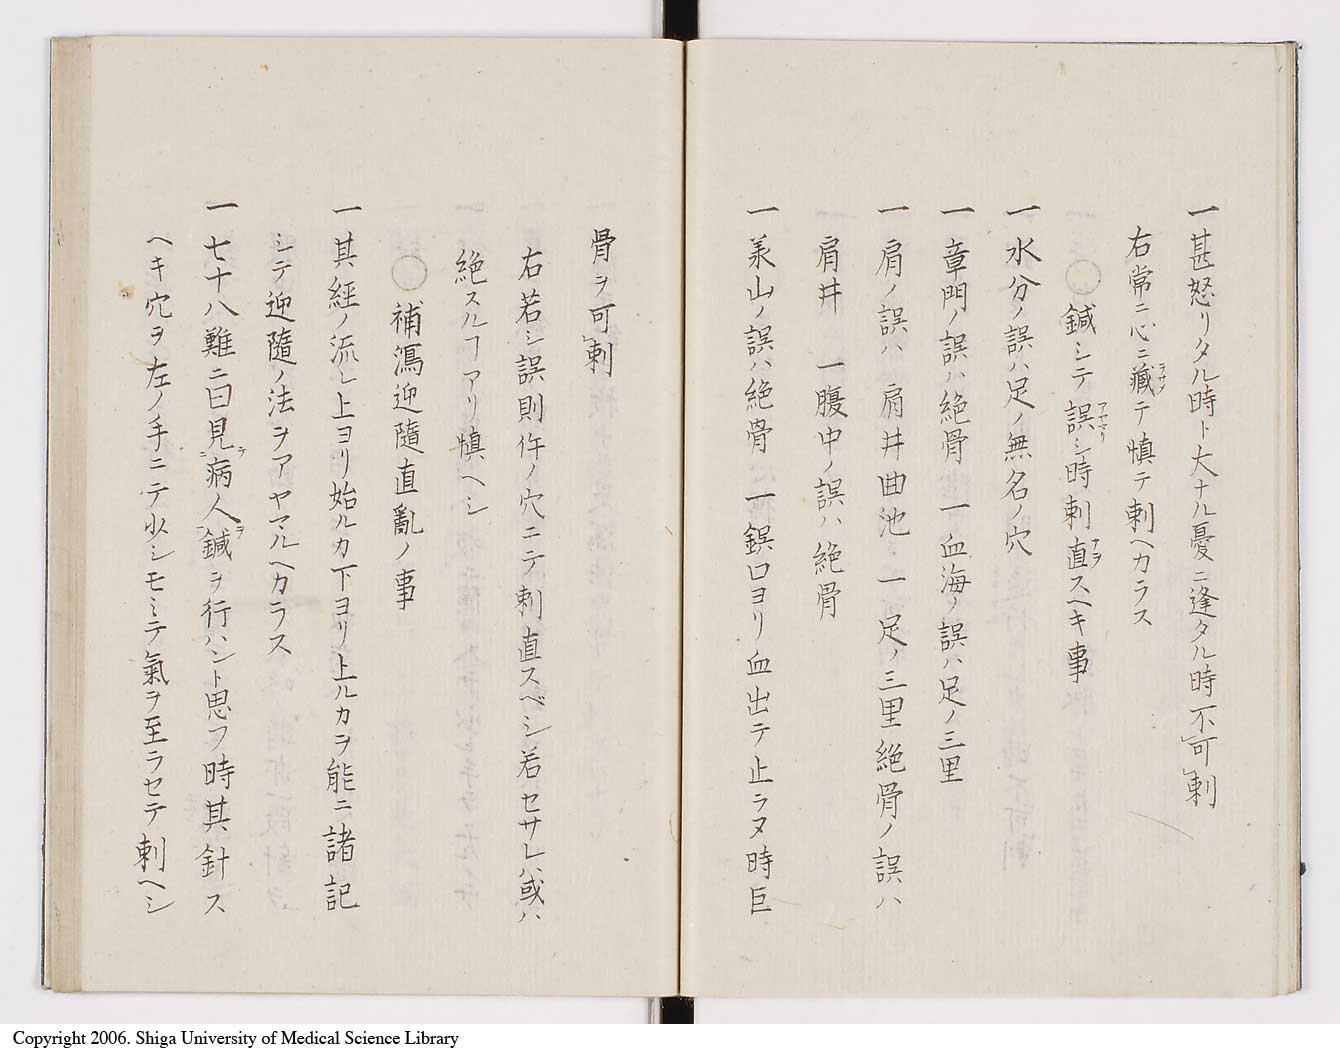 一甚怒リタル時ト大ナル憂ニ逢タル時不可刺
右常ニ心ニ藏テ慎テ刺ヘカラス
ヲサメ
○鍼シテ誤シ時刺直スヘキ事
アヤマリ
ナヲ
一水分ノ誤ハ足ノ無名ノ穴
一章門ノ誤ハ絶骨一血海ノ誤ハ足ノ三里
一肩ノ誤ハ肩井曲池一足ノ三里絶骨ノ誤ハ
肩井一腹中ノ誤ハ絶骨
一羕山ノ誤ハ絶骨一鋘口ヨリ血出テ止ラヌ時巨
骨ヲ可刺
右若シ誤則仵ノ穴ニテ刺直スベシ若セサレハ或ハ
絶スルヿアリ慎ヘシ
○補瀉迎隨直亂ノ事
一其經ノ流レ上ヨリ始ルカ下ヨリ上ルカヲ能ニ諸記
シテ迎隨ノ法ヲアヤマルヘカラス
一七十八難ニ曰見病人鍼ヲ行ハント思フ時其針ス
ヘキ穴ヲ左ノ手ニテ少シモミテ氣ヲ至ラセテ刺ヘシ
Copyright 2006. Shiga University of Medical Science Library